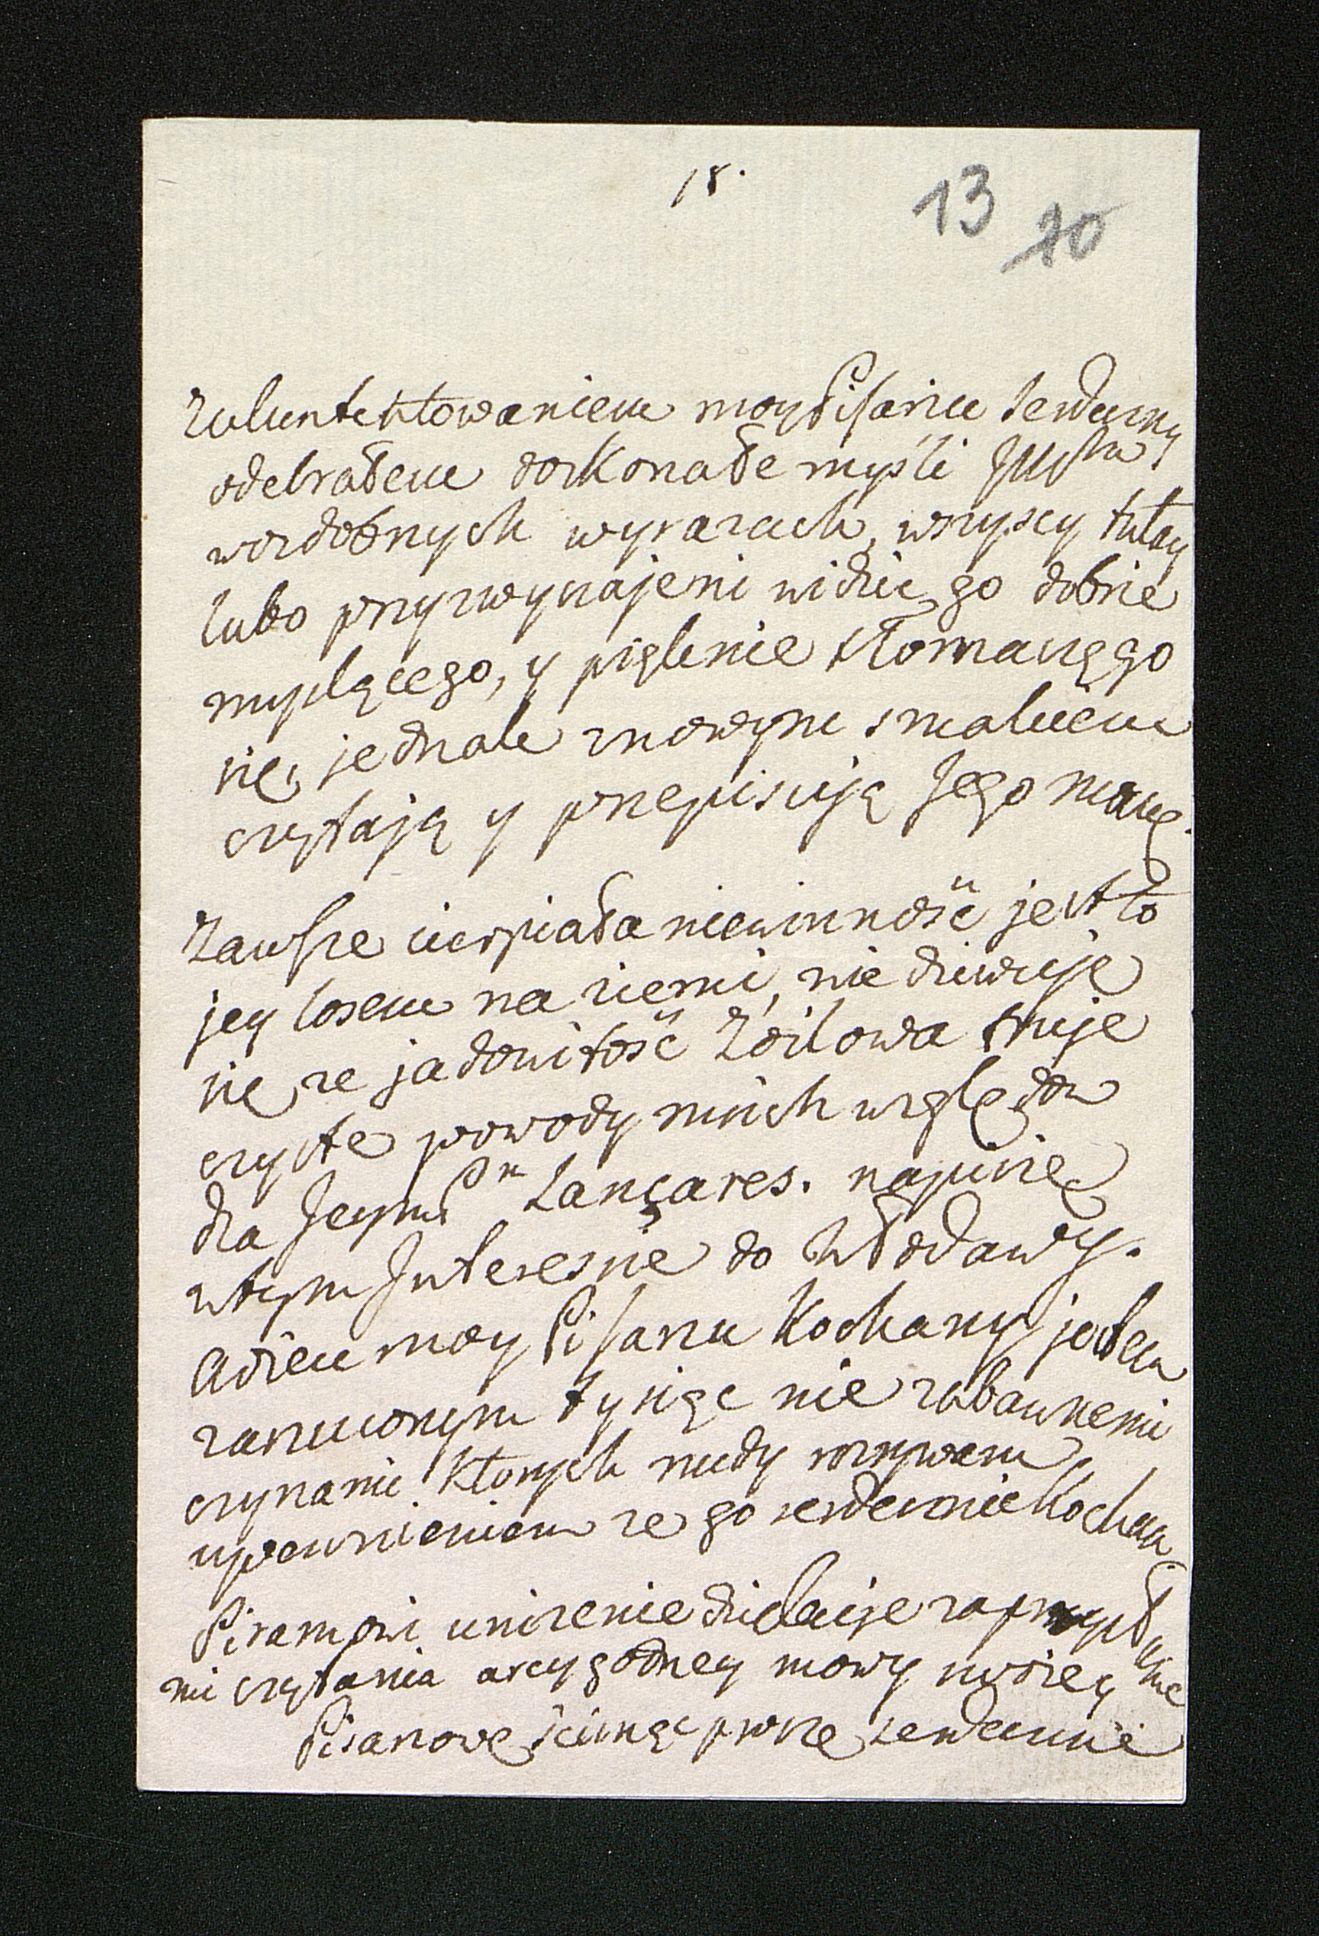 18.
13
20
zukuntektowaniem moy Pisarzu serdeczny
odebrałem doskonałe myśli JM Pa
wozdobnych wyrazach, wszyscy tutay
lubo przyzwyczajeni widzieć go dobrze
myslącego, y pięknie tłomaczącego
się, jednak znowym smakiem
czytają y przepisują Jego mowę.
Zawsze cierpiała niewinność jest to
jey losem na ziemi, nie dziwuje
się ze jadowitość Zoilowa truje
czyste powody moich względow
dla Jeym Pn Lançares. napiszę
wtym Interesie do Włodawy.
adieu moy Pisarzu Kochany jestem
zarzuconym tysiąc nie zabawnemi
czynami ktorych nudy rozrywam
upewnieniem ze go serdecznie Kocham
Piramowi unizenie dziekuje za przysłanie
mi czytania arcygodney mowy swoiey
Pisarzowę ścisnąć proszę serdecznie